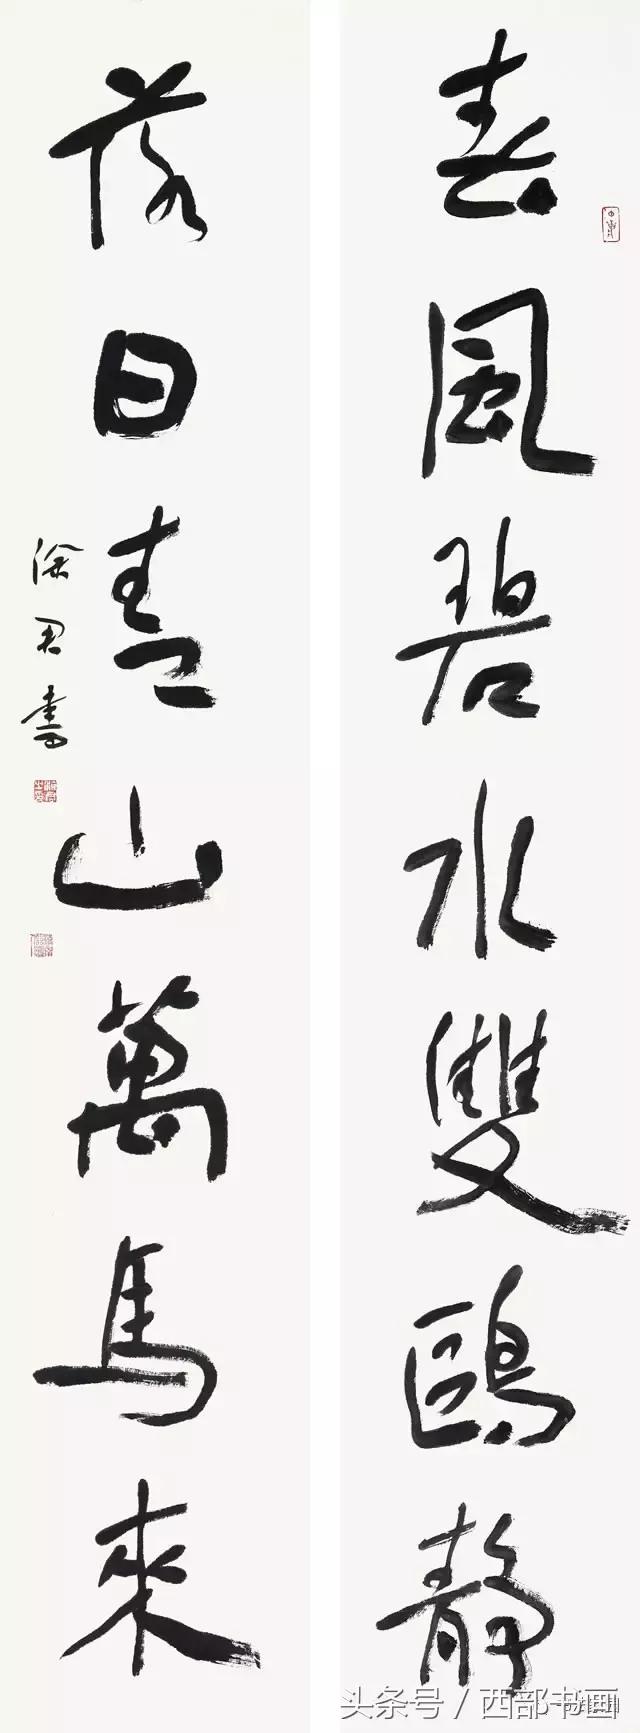 春風碧水雙鷗靜
落日青山萬馬來
徐君書
头条号/西部书画